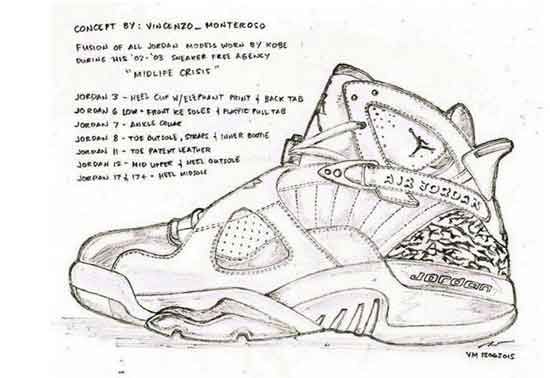 CONCEPT BY: VINCENZO_MONTEROSO
FUSION OF ALL JORDAN MODELS WORN BY KOBE
DURING HIS '02-'03 SNEAKER FREE AGENCY
"MIDLIFE CRISIS"
JORDAN 3 - HEEL CLIP W/ELEPHANT PRINT & BACK TAB
JORDAN 6 LOW - FRONT ICE SOLES & PLASTIC PULL TAB
JORDAN 7 - ANKLE COLLAR
JORDAN 8 - TOE OUTSOLE, STRAPS & INNER BOOTIE
JORDAN 11 - TOE PATENT LEATHER
JORDAN 12 - MID UPPER & HEEL OUTSOLE
JORDAN 17 & 17+ - HEEL MIDSOLE
AIR JORDAN
Jordan